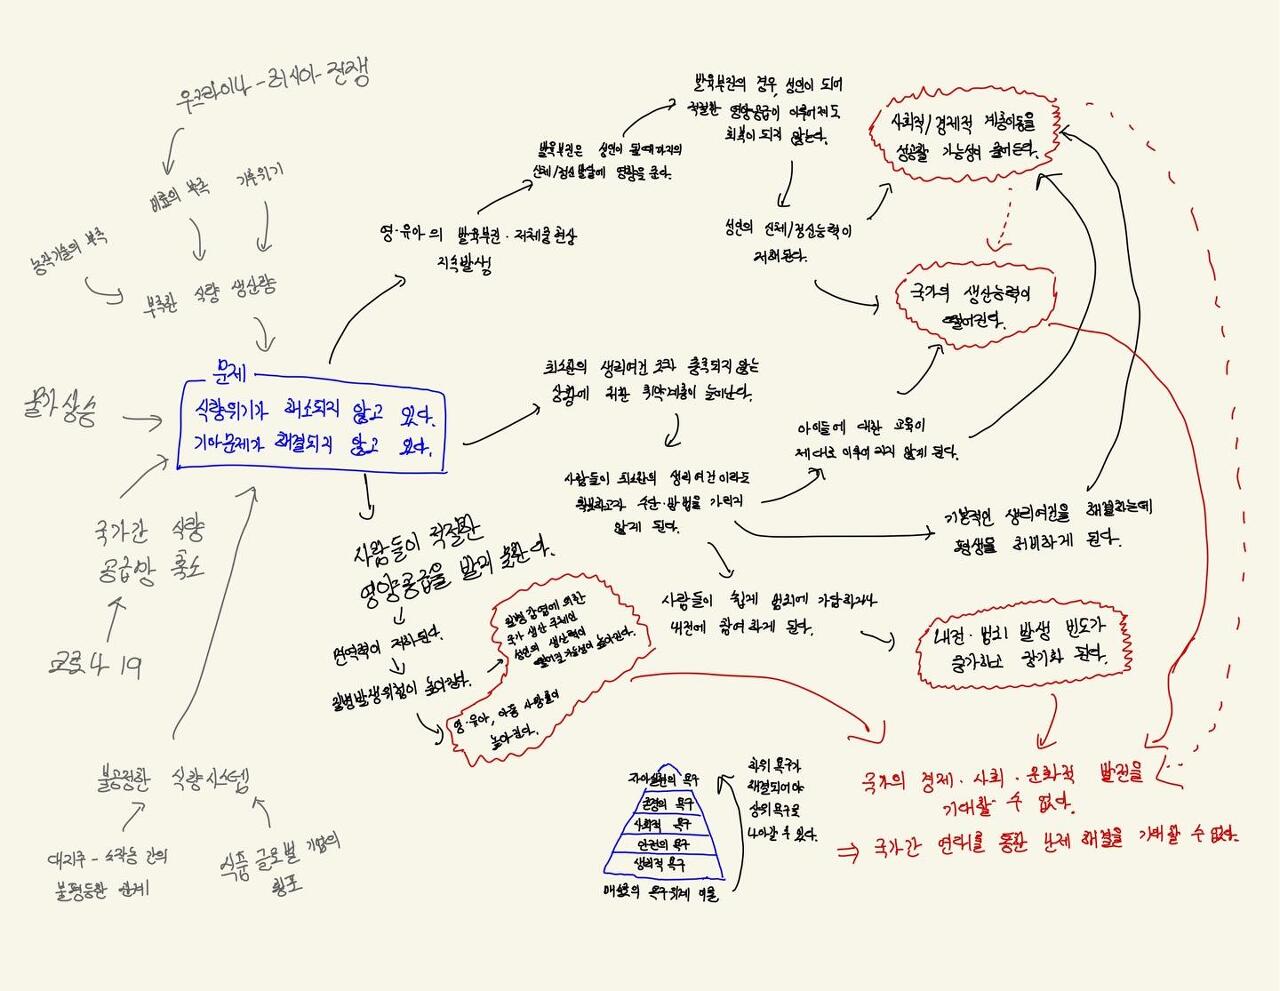 우크라이나-러시아 전쟁
비료의 부족
기후위기
농작기술의 부족
부족한 식량 생산량
물가상승
국가간 식량
공급망 축소
코로나 19
불공정한 식량시스템
대지주-소작농 간의
불평등한 관계
식품 글로벌 기업의
횡포
문제
식량위기가 해소되지 않고 있다.
기아문제가 해결되지 않고 있다.
영·유아의 발육부진·저체중현상
지속발생
발육부진은 성인이 될때까지의
신체/정신발달에 영향을 준다.
발육부진의 경우, 성인이 되어
적절한 영양공급이 이루어져도
회복이 되지 않는다.
성인의 신체/정신능력이
저해된다.
사회적/경제적 계층이동을
성공할 가능성이 줄어든다.
국가의 생산능력이
떨어진다.
최소한의 생리여건 조차 충족되지 않는
상황에 처한 취약계층이 늘어난다.
사람들이 최소한의 생리여건이라도
확보하고자 수단·방법을 가리지
않게 된다.
아이들에 대한 교육이
제대로 이루어지지 않게 된다.
기본적인 생리여건을 해결하는데
평생을 허비하게 된다.
사람들이 쉽게 범죄에 가담하거나
내전에 참여하게 된다.
내전·범죄 발생 빈도가
증가하고 장기화 된다.
사람들이 적절한
영양공급을 받지 못한다.
면역력이 저하된다.
질병발생위험이 높아진다.
질병감염에 의한
국가 생산 주체인
성인의 생산력이
떨어질 가능성이 높아진다.
영·유아, 아동 사망률이
높아진다.
국가의 경제·사회·문화적 발전을
기대할 수 없다.
⇒ 국가간 연대를 통한 난제 해결을 기대할 수 없다.
자아실현의 욕구
존경의 욕구
사회적 욕구
안전의 욕구
생리적 욕구
매슬로의 욕구위계 이론
하위 욕구가
해결되어야
상위 욕구로
나아갈 수 있다.